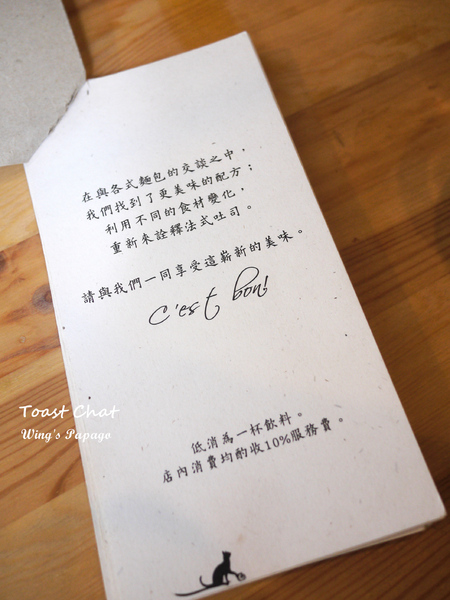 在與各式麵包的交談之中，
我們找到了更美味的配方；
利用不同的食材變化，
重新來詮釋法式吐司。
請與我們一同享受這嶄新的美味。
C'est bon!
Toast Chat
Wing's Papago
低消為一杯飲料。
店內消費均酌收10%服務費。